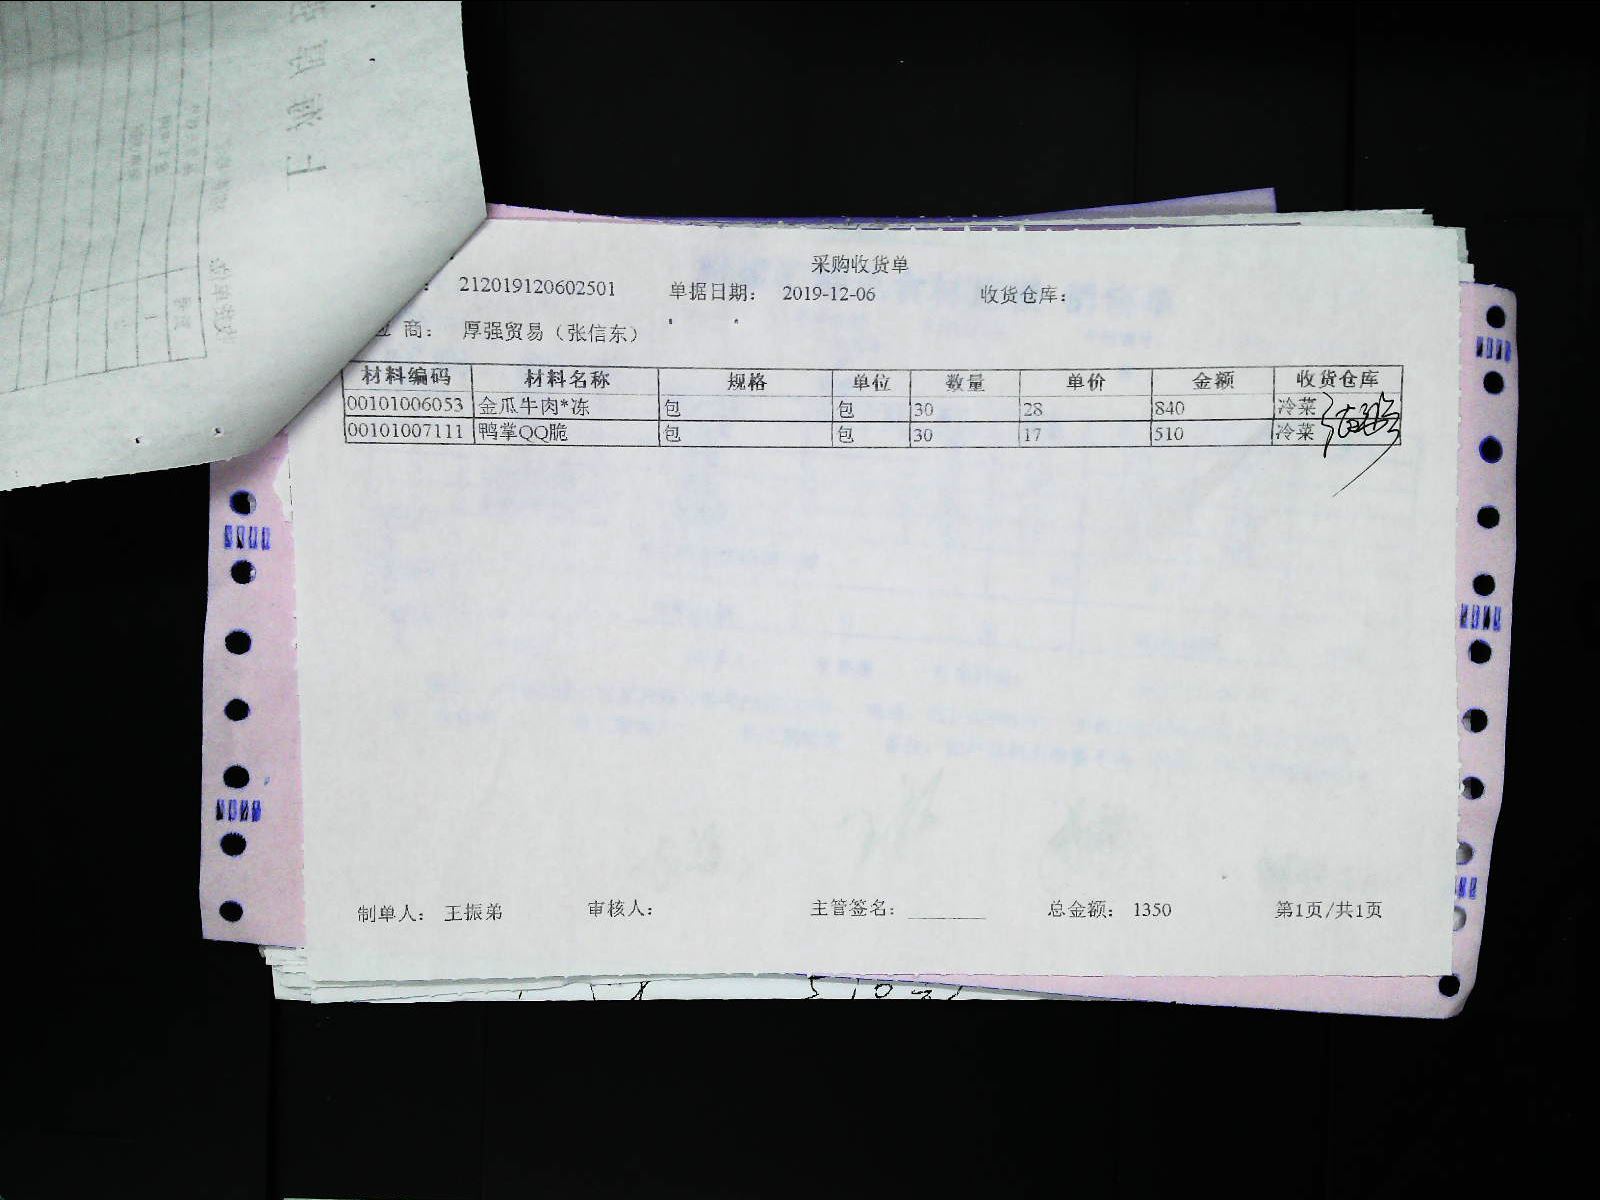 采购收货单
: 212019120602501 单据日期: 2019-12-06 收货仓库:
应 商: 厚强贸易（张信东）
材料编码 材料名称 规格 单位 数量 单价 金额 收货仓库
00101006053 金瓜牛肉*冻 包 包 30 28 840 冷菜
00101007111 鸭掌QQ脆 包 包 30 17 510 冷菜
制单人: 王振弟 审核人: 主管签名: ________ 总金额: 1350 第1页/共1页